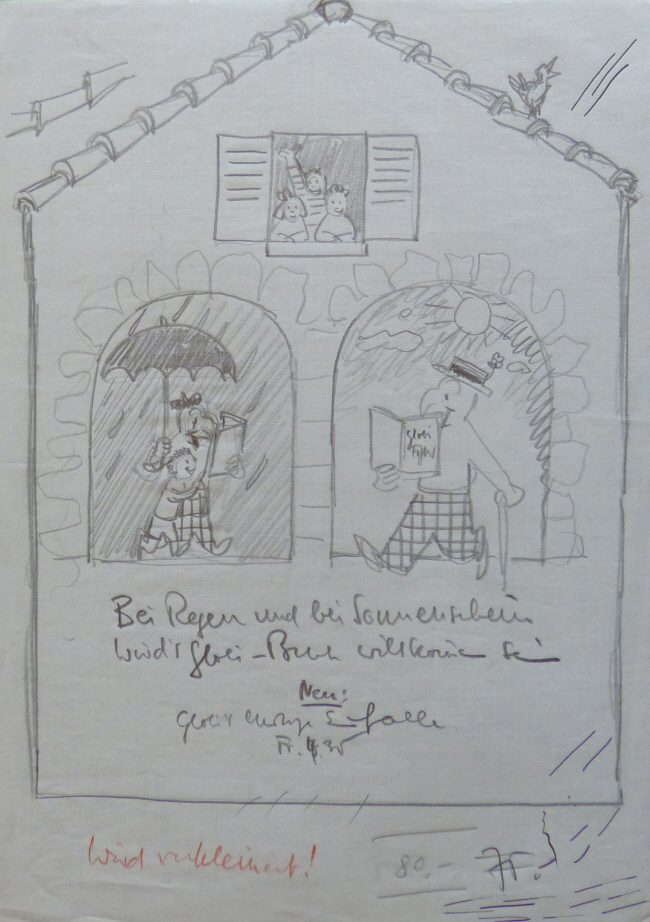 Globi
Bei Regen und bei Sonnenschein
wird's Globi-Buch willkommen sein
Neu:
Globi's lustige Einfälle
Fr.
Wird verkleinert!
80.-